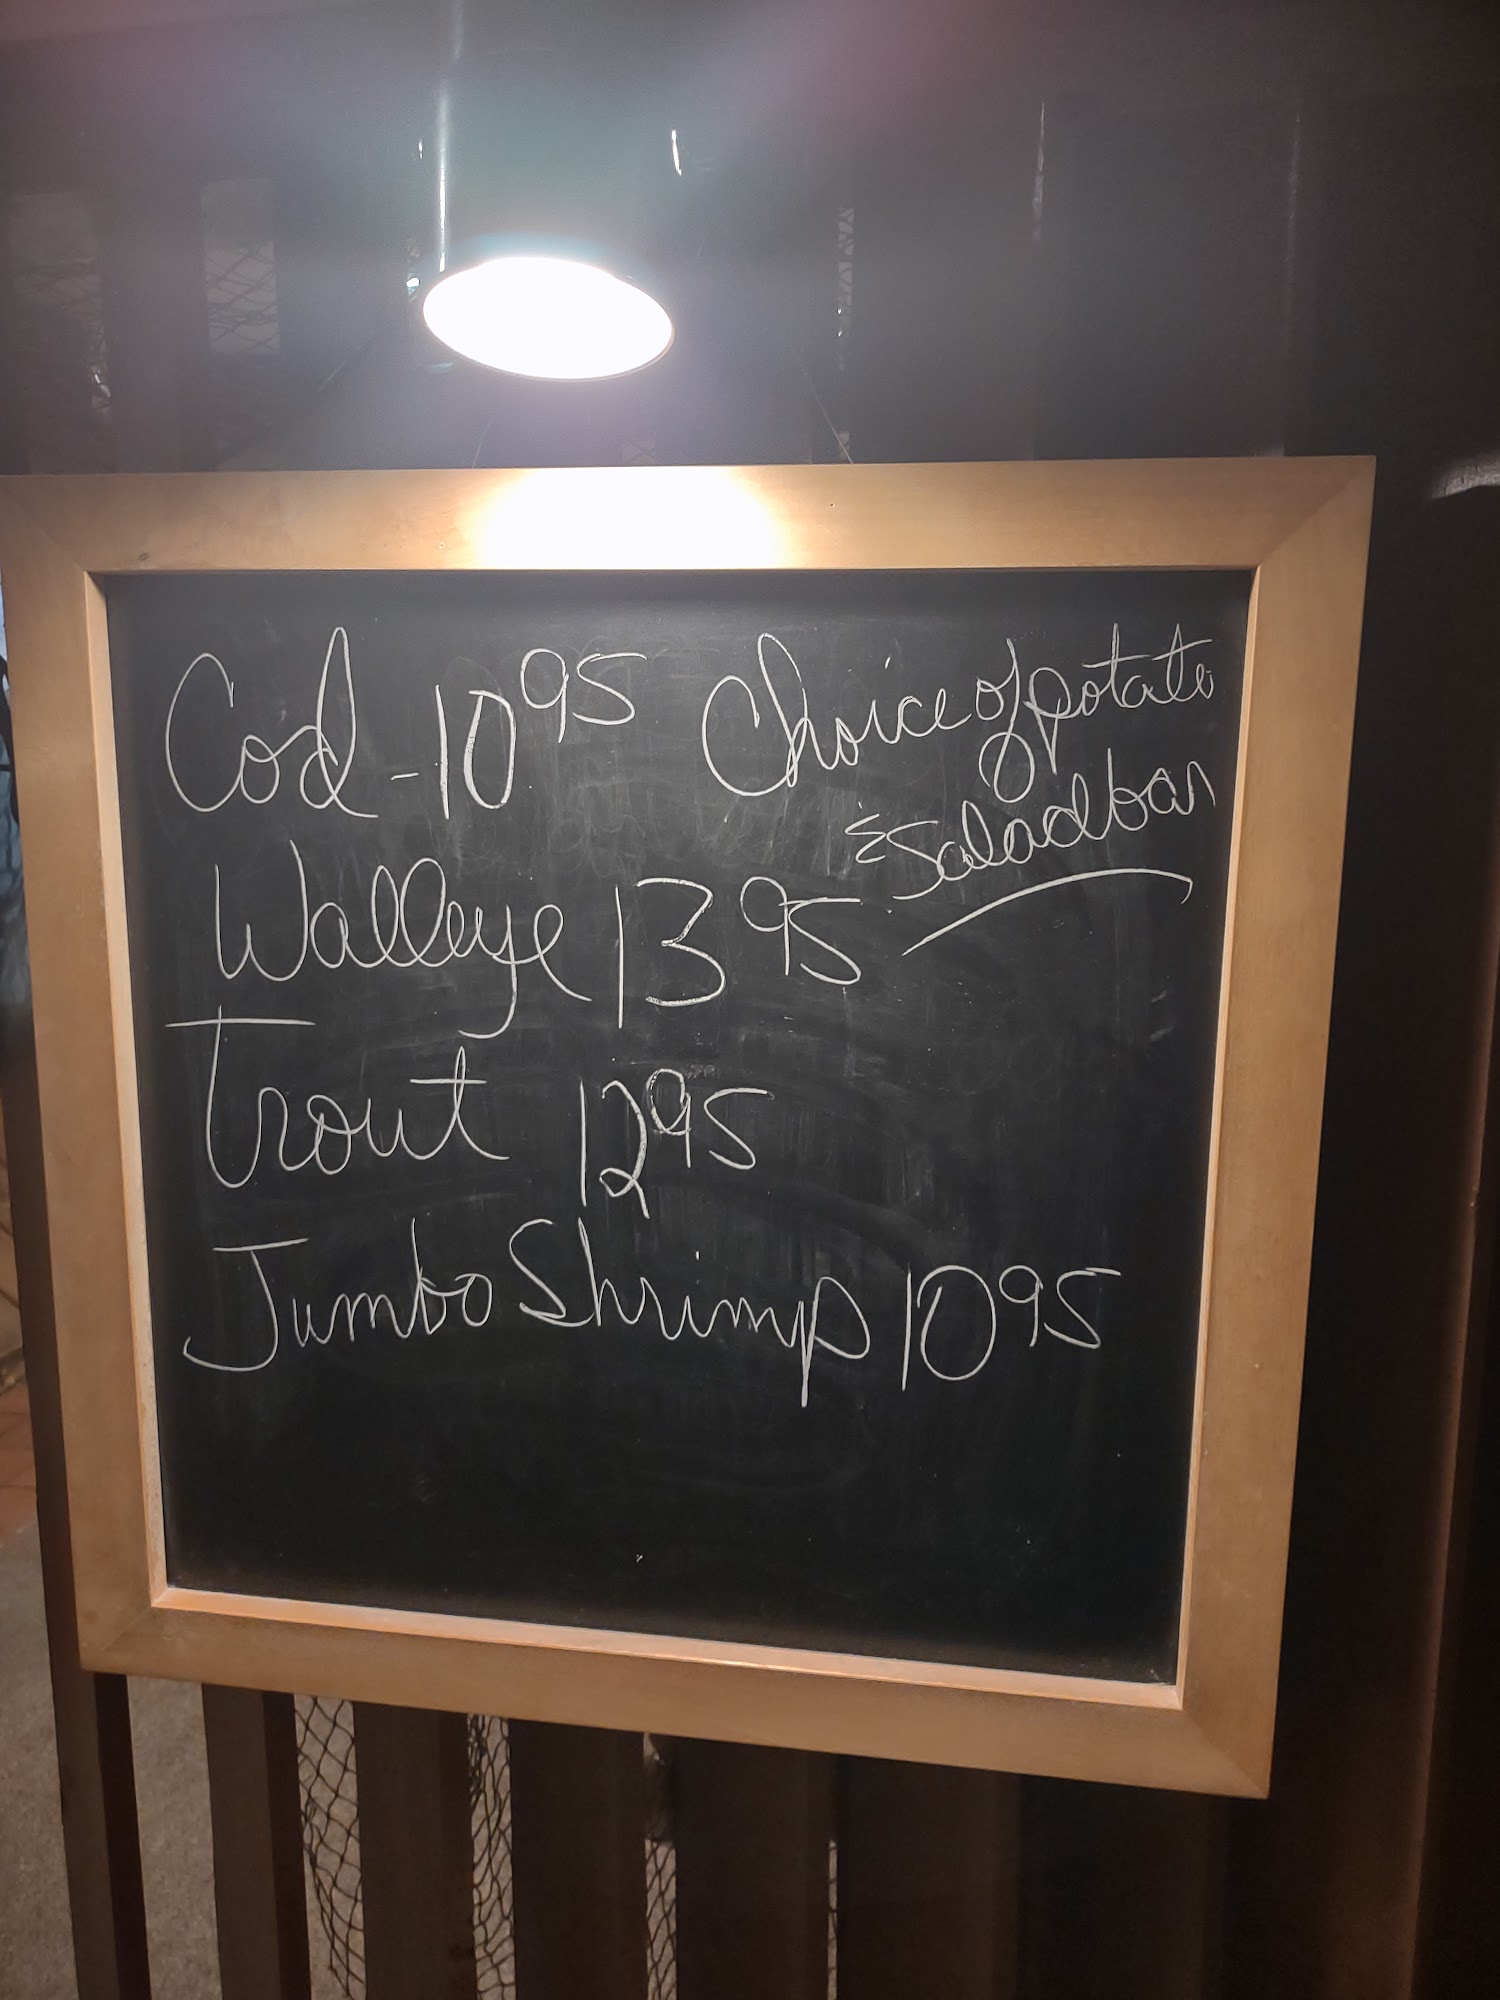 Cod - 10 95 Choice of potato
& Salad bar
Walleye 13 95
Trout 12 95
Jumbo Shrimp 10 95